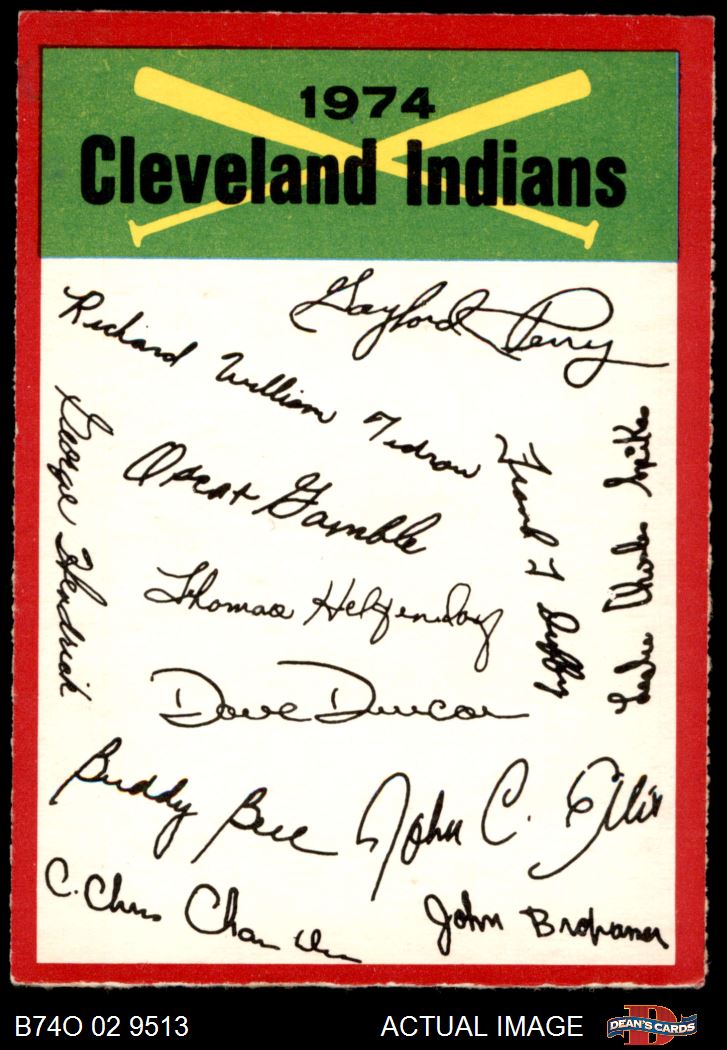 1974
Cleveland Indians
Gaylord Perry
Richard William Tidrow
George Hendrick
Oscar Gamble
Frank T Duffy
Leslie Charles Spikes
Thomas Hilgendorf
Dave Duncan
Buddy Bell
John C. Ellis
C. Chris Cham
John Brohamer
B74O 02 9513
ACTUAL IMAGE
D
DEAN'S CARDS